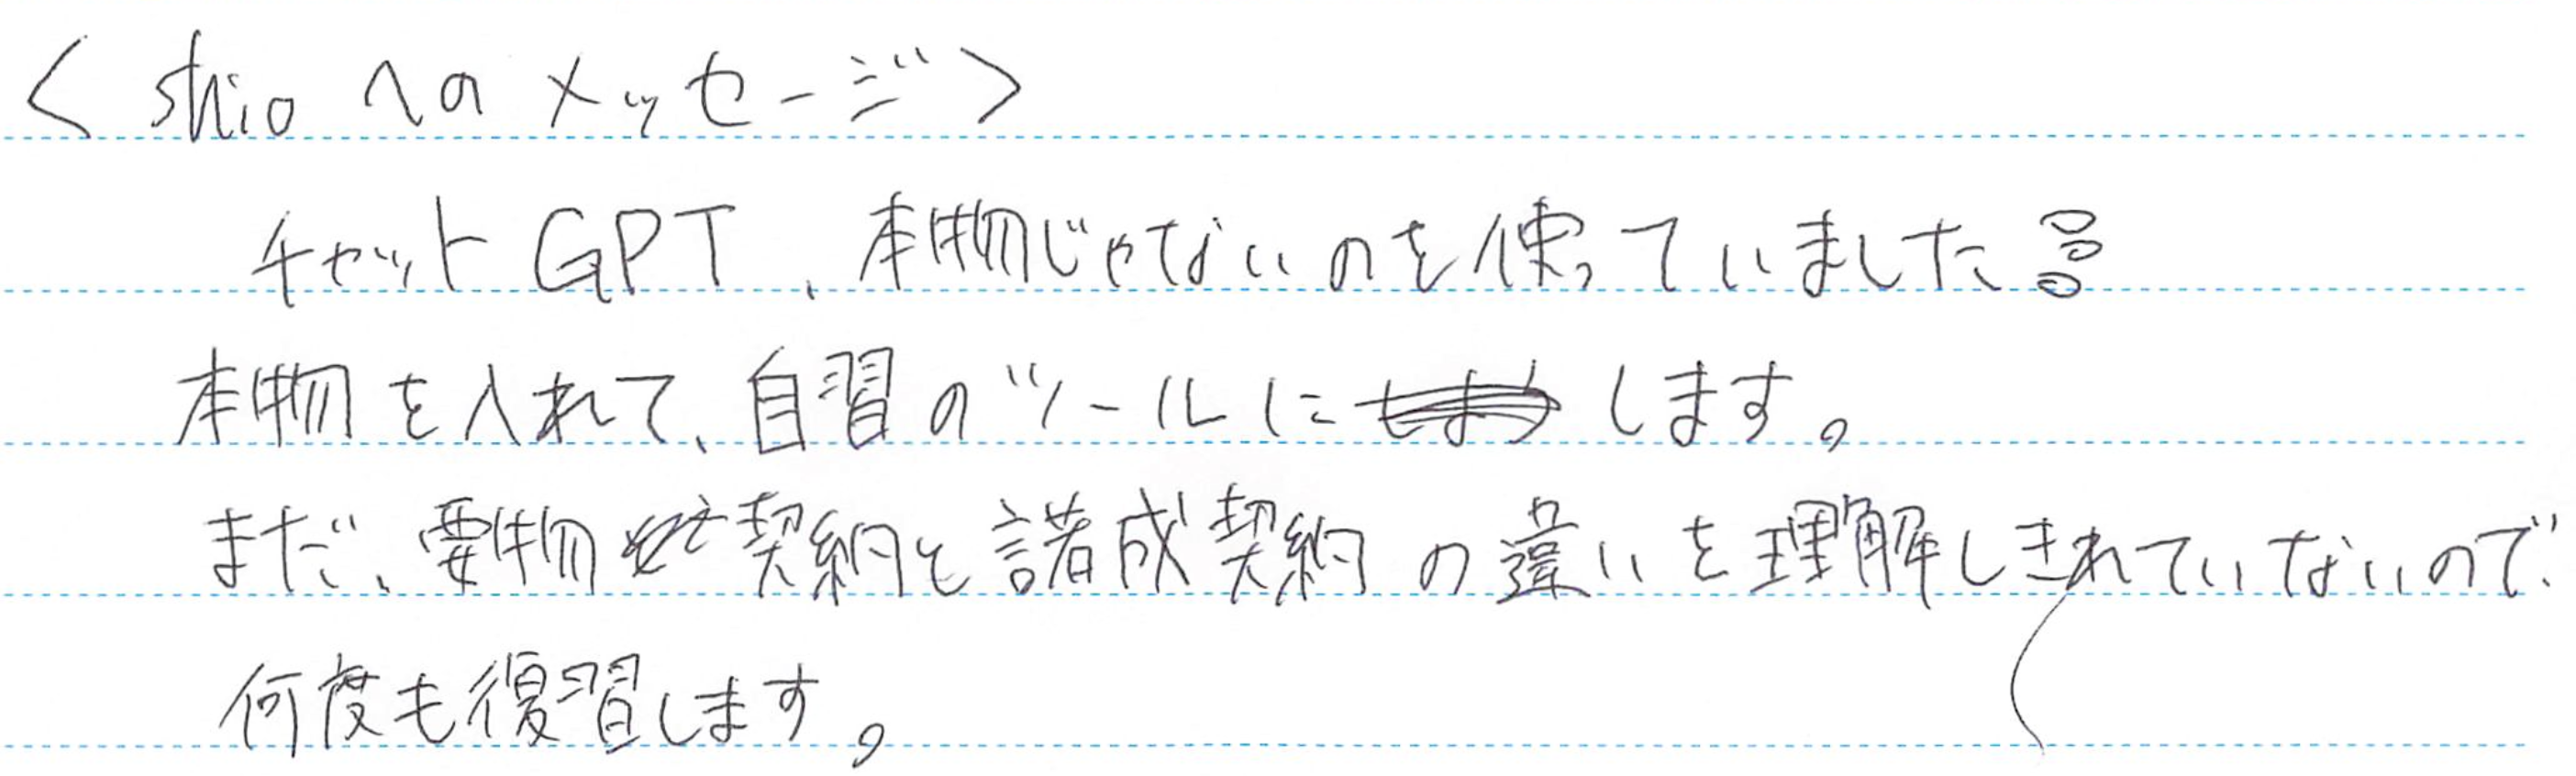 < shioへのメッセージ >
チャットGPT、本物じゃないのを使っていました
本物を入れて、自習のツールにします。
まだ、要物契約と諾成契約の違いを理解しきれていないので、
何度も復習します。